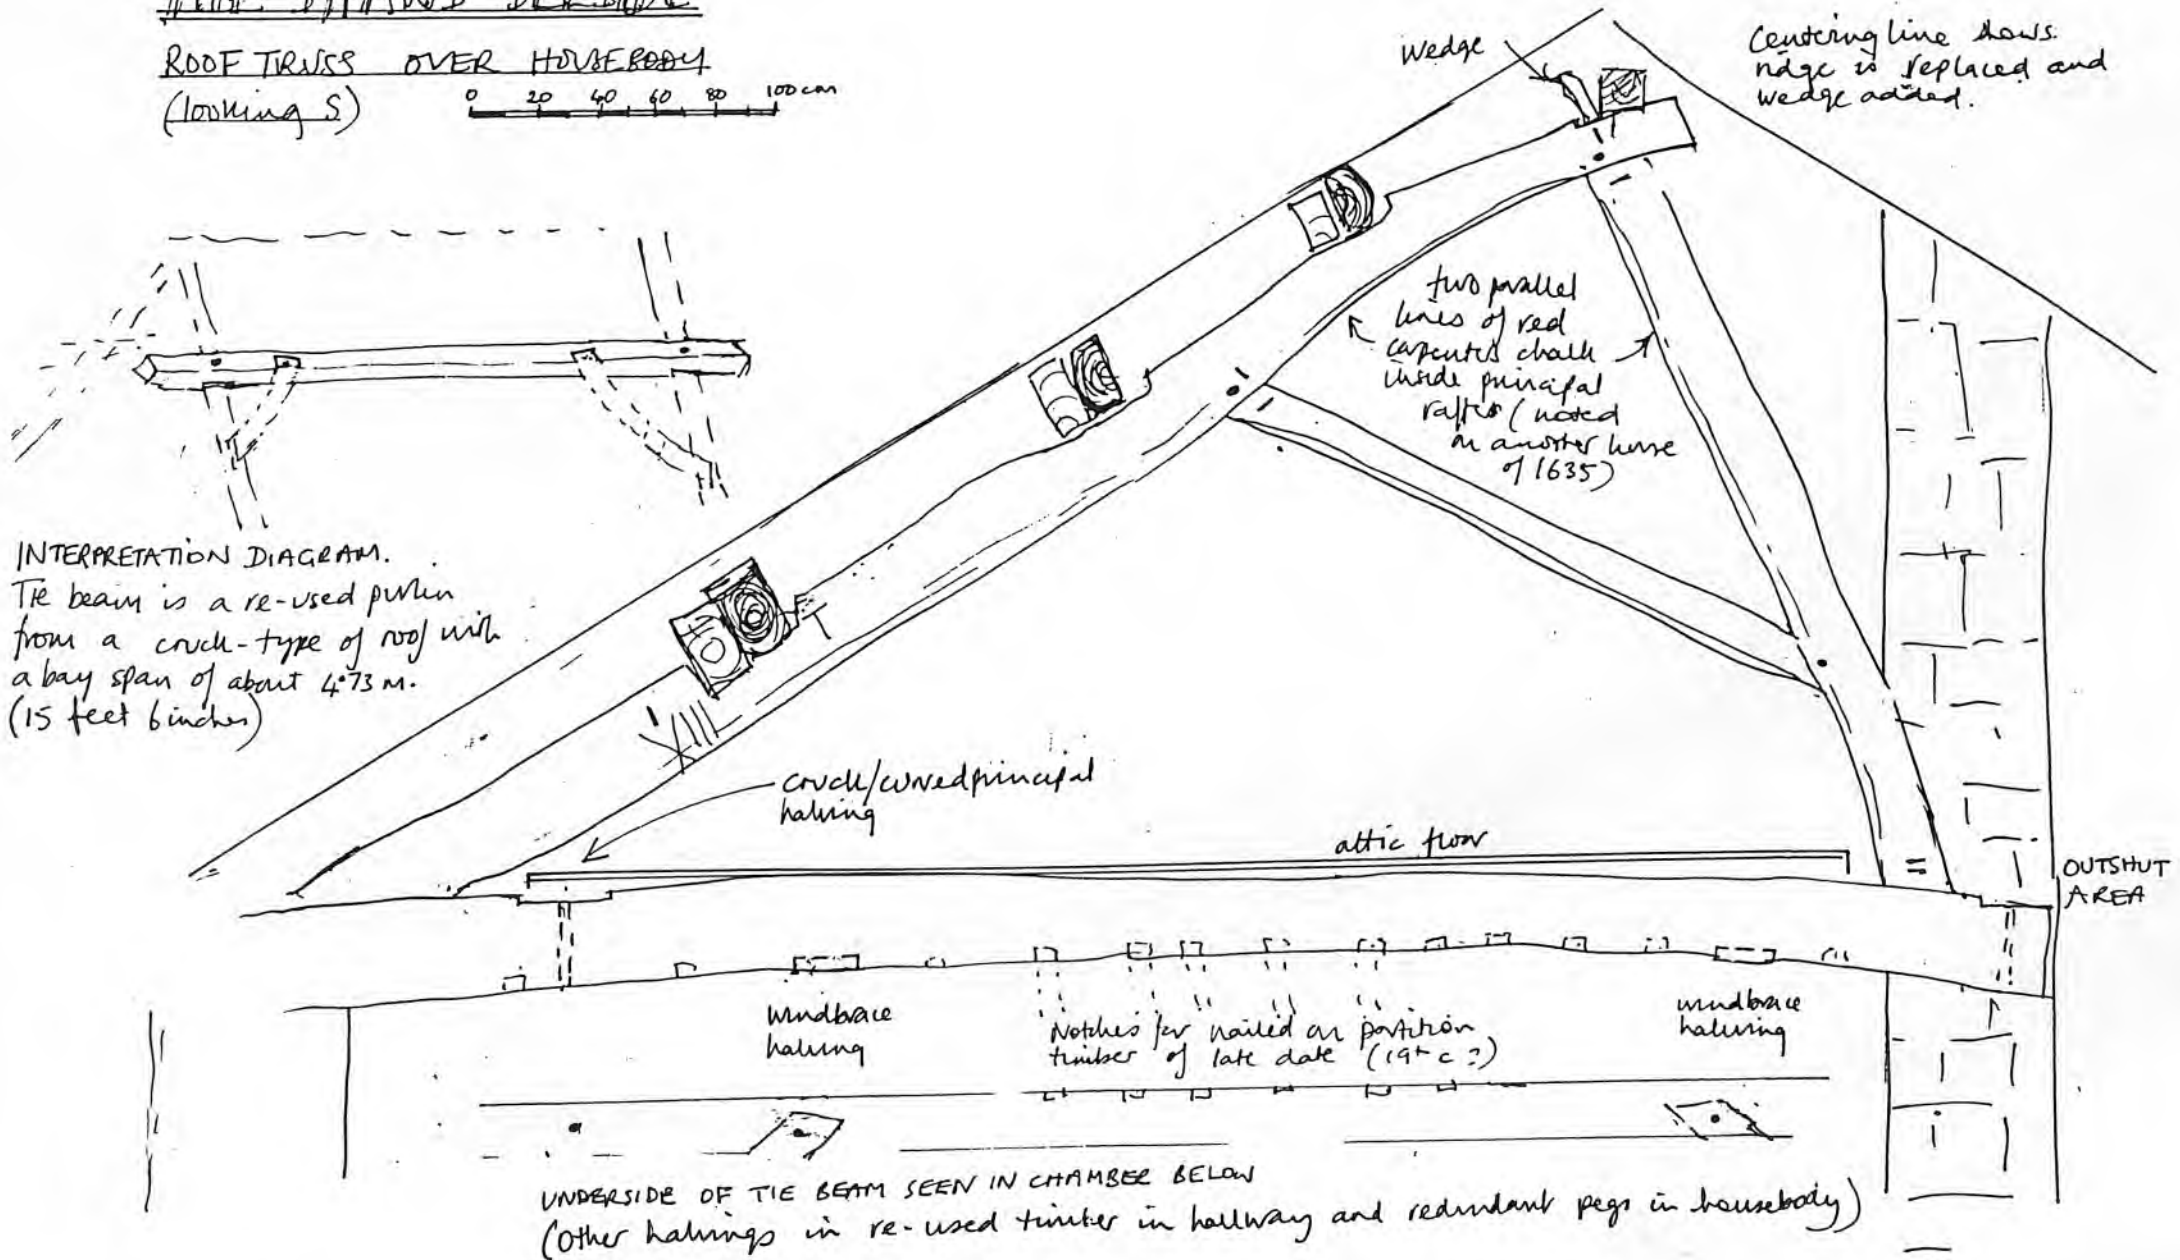 ROOF TRUSS OVER HOUSEBODY
(looking S)
0 20 40 60 80 100 cm
Wedge
Centering line shows
ridge is replaced and
wedge added.
two parallel
lines of red
carpenters chalk
inside principal
rafters (noted
in another house
of 1635)
INTERPRETATION DIAGRAM.
Tie beam is a re-used purlin
from a cruck-type of roof with
a bay span of about 4.73 m.
(15 feet 6 inches)
cruck/curved principal
halving
attic floor
OUTSHUT
AREA
windbrace
halving
Notches for nailed on partition
timber of late date (19th c?)
windbrace
halving
UNDERSIDE OF TIE BEAM SEEN IN CHAMBER BELOW
(Other halvings in re-used timber in hallway and redundant pegs in housebody)